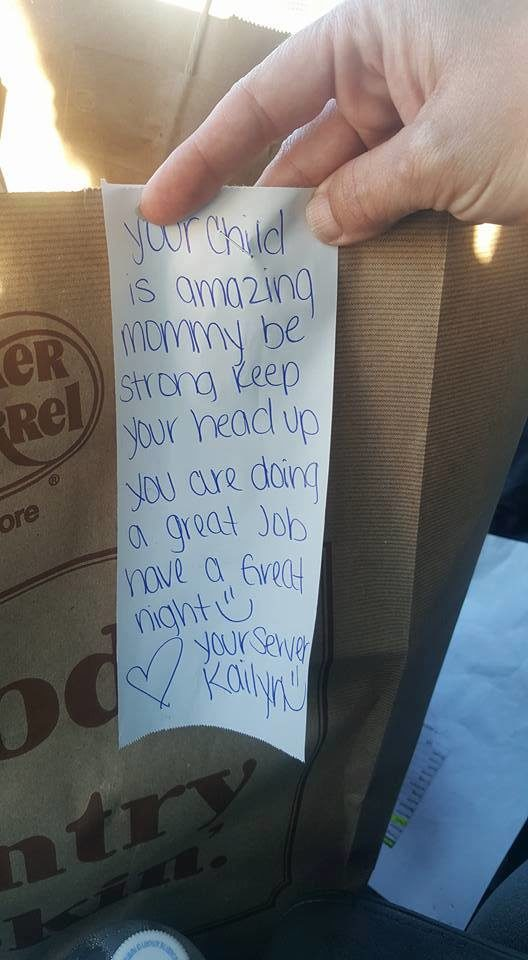 your child
is amazing
mommy be
strong keep
your head up
you are doing
a great Job
have a Great
night
your server
Kailyn
ker
rrel
ore
®
od
ntry
kin.